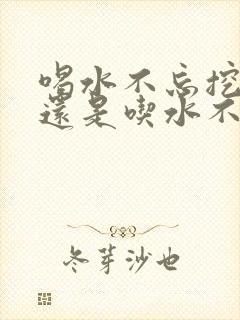 喝水不忘挖
還是喫水不
冬芽沙也